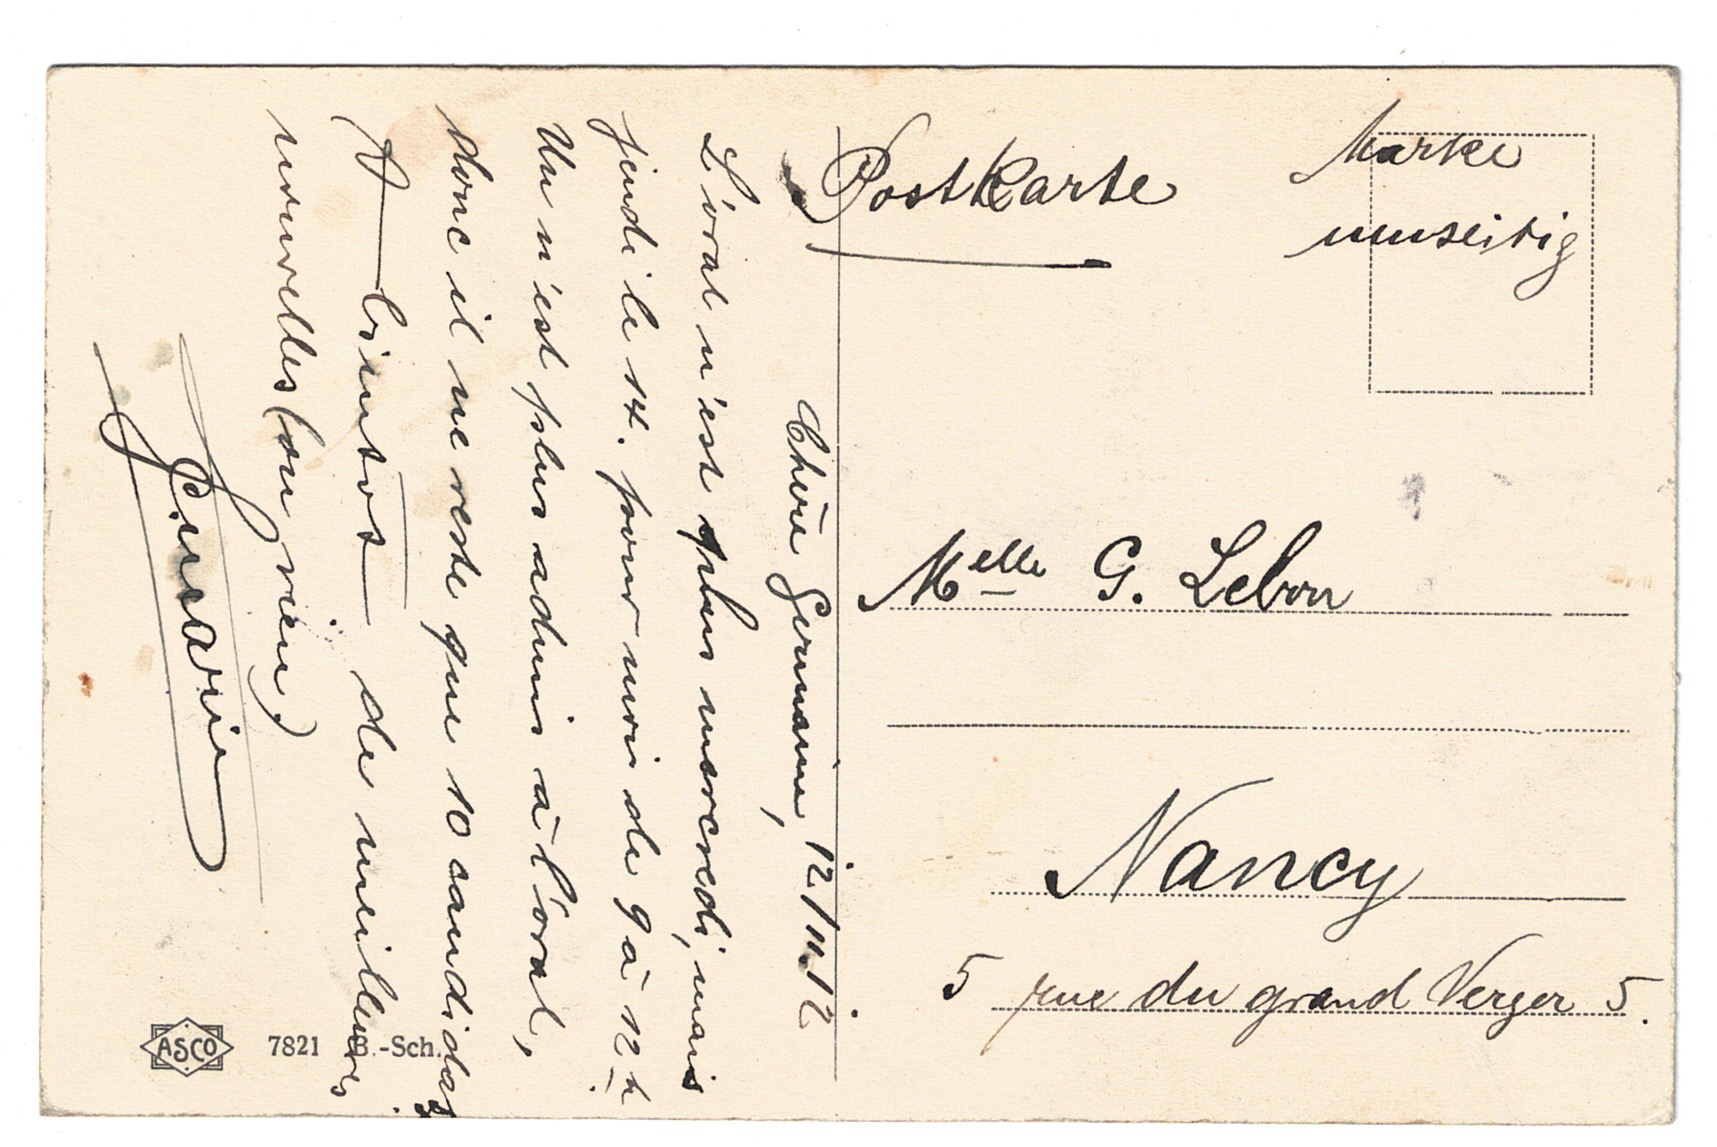 Postkarte
Marke
umseitig
12/11.12
Chère Germaine,
L'oral n'est plus mercredi, mais
jeudi le 14. pour moi de 9 à 12 h
Un n'est plus admis à l'oral,
donc il ne reste que 10 candidats
A bientôt de meilleures
nouvelles (ou rien)
Melle G. Lebon
Nancy
5 rue du grand Verger 5.
ASCO 7821 B.-Sch.